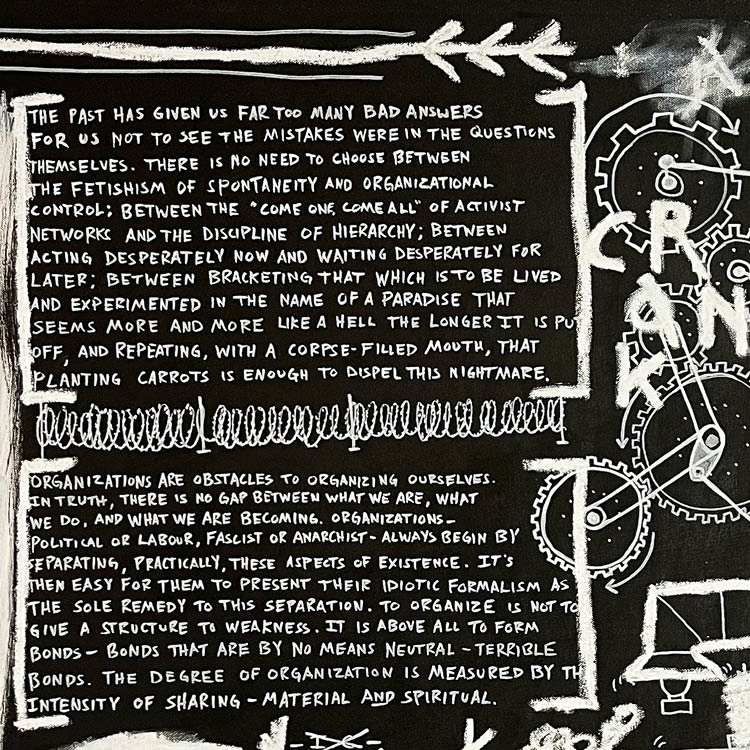 THE PAST HAS GIVEN US FAR TOO MANY BAD ANSWERS
FOR US NOT TO SEE THE MISTAKES WERE IN THE QUESTIONS
THEMSELVES. THERE IS NO NEED TO CHOOSE BETWEEN
THE FETISHISM OF SPONTANEITY AND ORGANIZATIONAL
CONTROL; BETWEEN THE "COME ONE, COME ALL" OF ACTIVIST
NETWORKS AND THE DISCIPLINE OF HIERARCHY; BETWEEN
ACTING DESPERATELY NOW AND WAITING DESPERATELY FOR
LATER; BETWEEN BRACKETING THAT WHICH IS TO BE LIVED
AND EXPERIMENTED IN THE NAME OF A PARADISE THAT
SEEMS MORE AND MORE LIKE A HELL THE LONGER IT IS PUT
OFF, AND REPEATING, WITH A CORPSE-FILLED MOUTH, THAT
PLANTING CARROTS IS ENOUGH TO DISPEL THIS NIGHTMARE.
ORGANIZATIONS ARE OBSTACLES TO ORGANIZING OURSELVES.
IN TRUTH, THERE IS NO GAP BETWEEN WHAT WE ARE, WHAT
WE DO, AND WHAT WE ARE BECOMING. ORGANIZATIONS-
POLITICAL OR LABOUR, FASCIST OR ANARCHIST - ALWAYS BEGIN BY
SEPARATING, PRACTICALLY, THESE ASPECTS OF EXISTENCE. IT'S
THEN EASY FOR THEM TO PRESENT THEIR IDIOTIC FORMALISM AS
THE SOLE REMEDY TO THIS SEPARATION. TO ORGANIZE IS NOT TO
GIVE A STRUCTURE TO WEAKNESS. IT IS ABOVE ALL TO FORM
BONDS - BONDS THAT ARE BY NO MEANS NEUTRAL - TERRIBLE
BONDS. THE DEGREE OF ORGANIZATION IS MEASURED BY TH
INTENSITY OF SHARING - MATERIAL AND SPIRITUAL.
A
CRANK